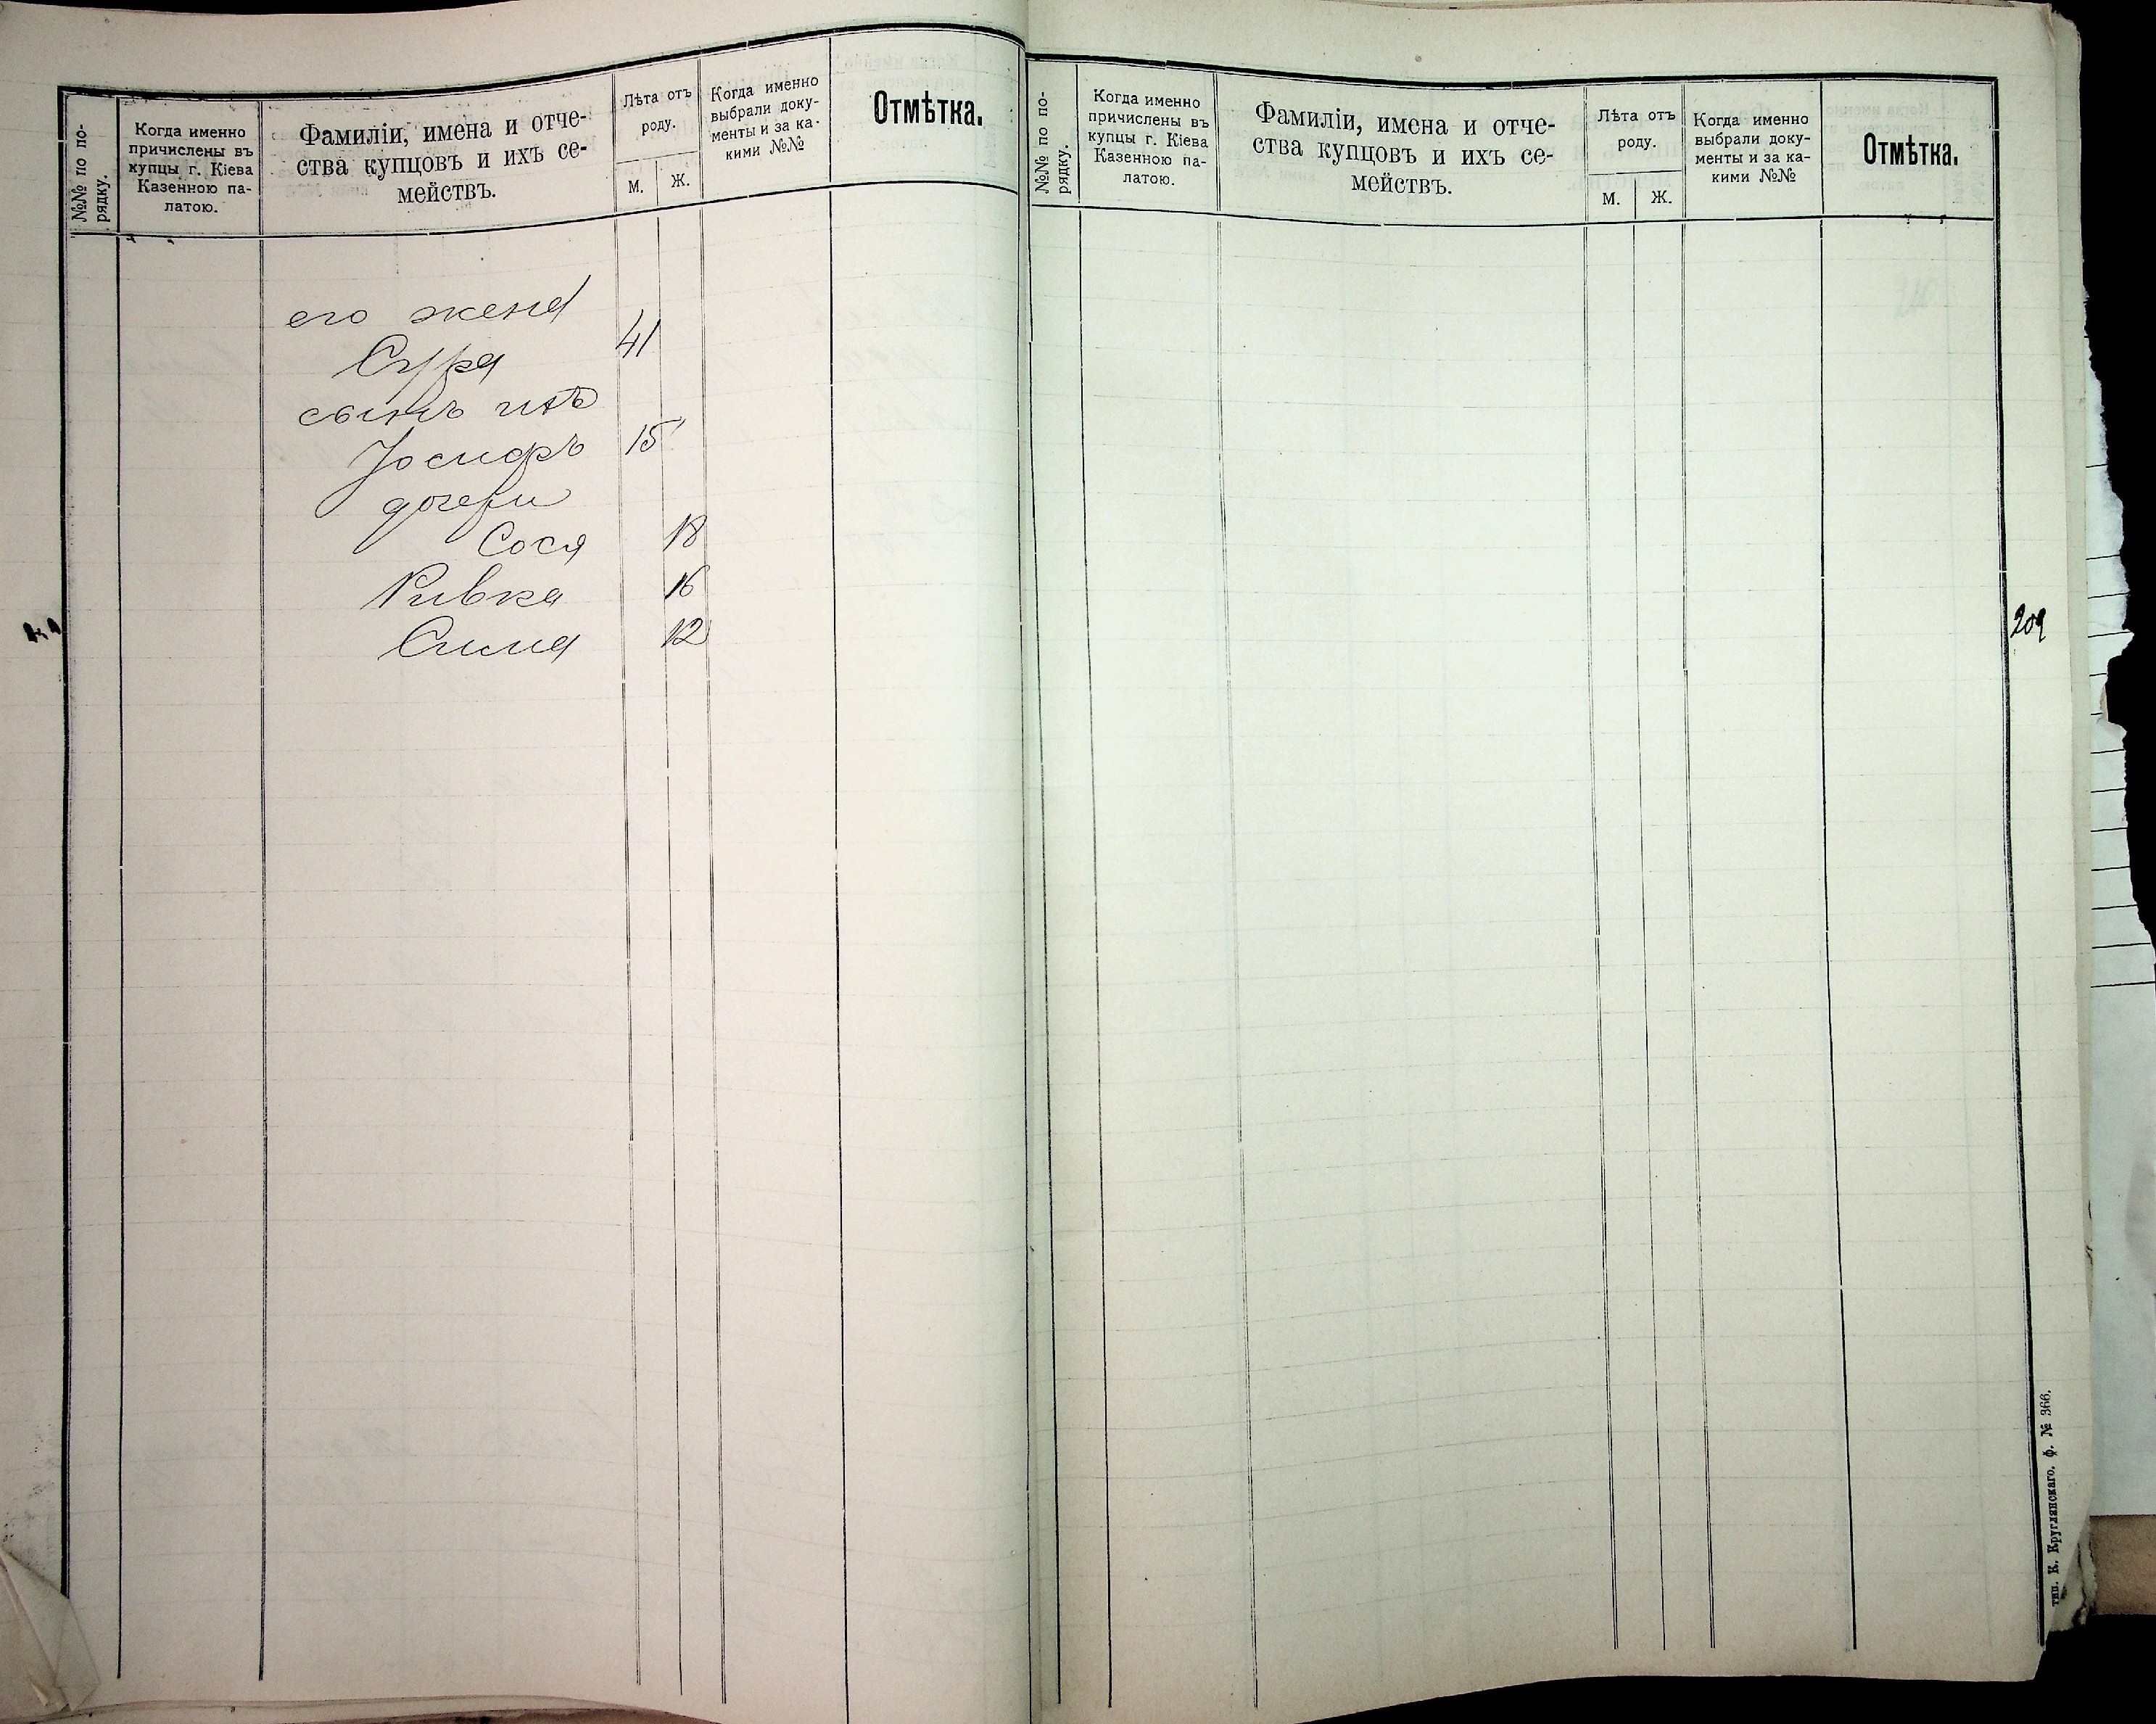 №№ по по-
рядку.
Когда именно
причислены въ
купцы г. Кіева
Казенною па-
латою.
Фамиліи, имена и отче-
ства купцовъ и ихъ се-
мействъ.
Лѣта отъ
роду.
М.
Ж.
Когда именно
выбрали доку-
менты и за ка-
кими №№
Отмѣтка.
его жена
Сура 41
сынъ ихъ
Іосифъ 15
дочери
Сося 18
Ривка 16
Сима 12
№№ по по-
рядку.
Когда именно
причислены въ
купцы г. Кіева
Казенною па-
латою.
Фамиліи, имена и отче-
ства купцовъ и ихъ се-
мействъ.
Лѣта отъ
роду.
М.
Ж.
Когда именно
выбрали доку-
менты и за ка-
кими №№
Отмѣтка.
209
тип. К. Круглянскаго. ф. № 366.